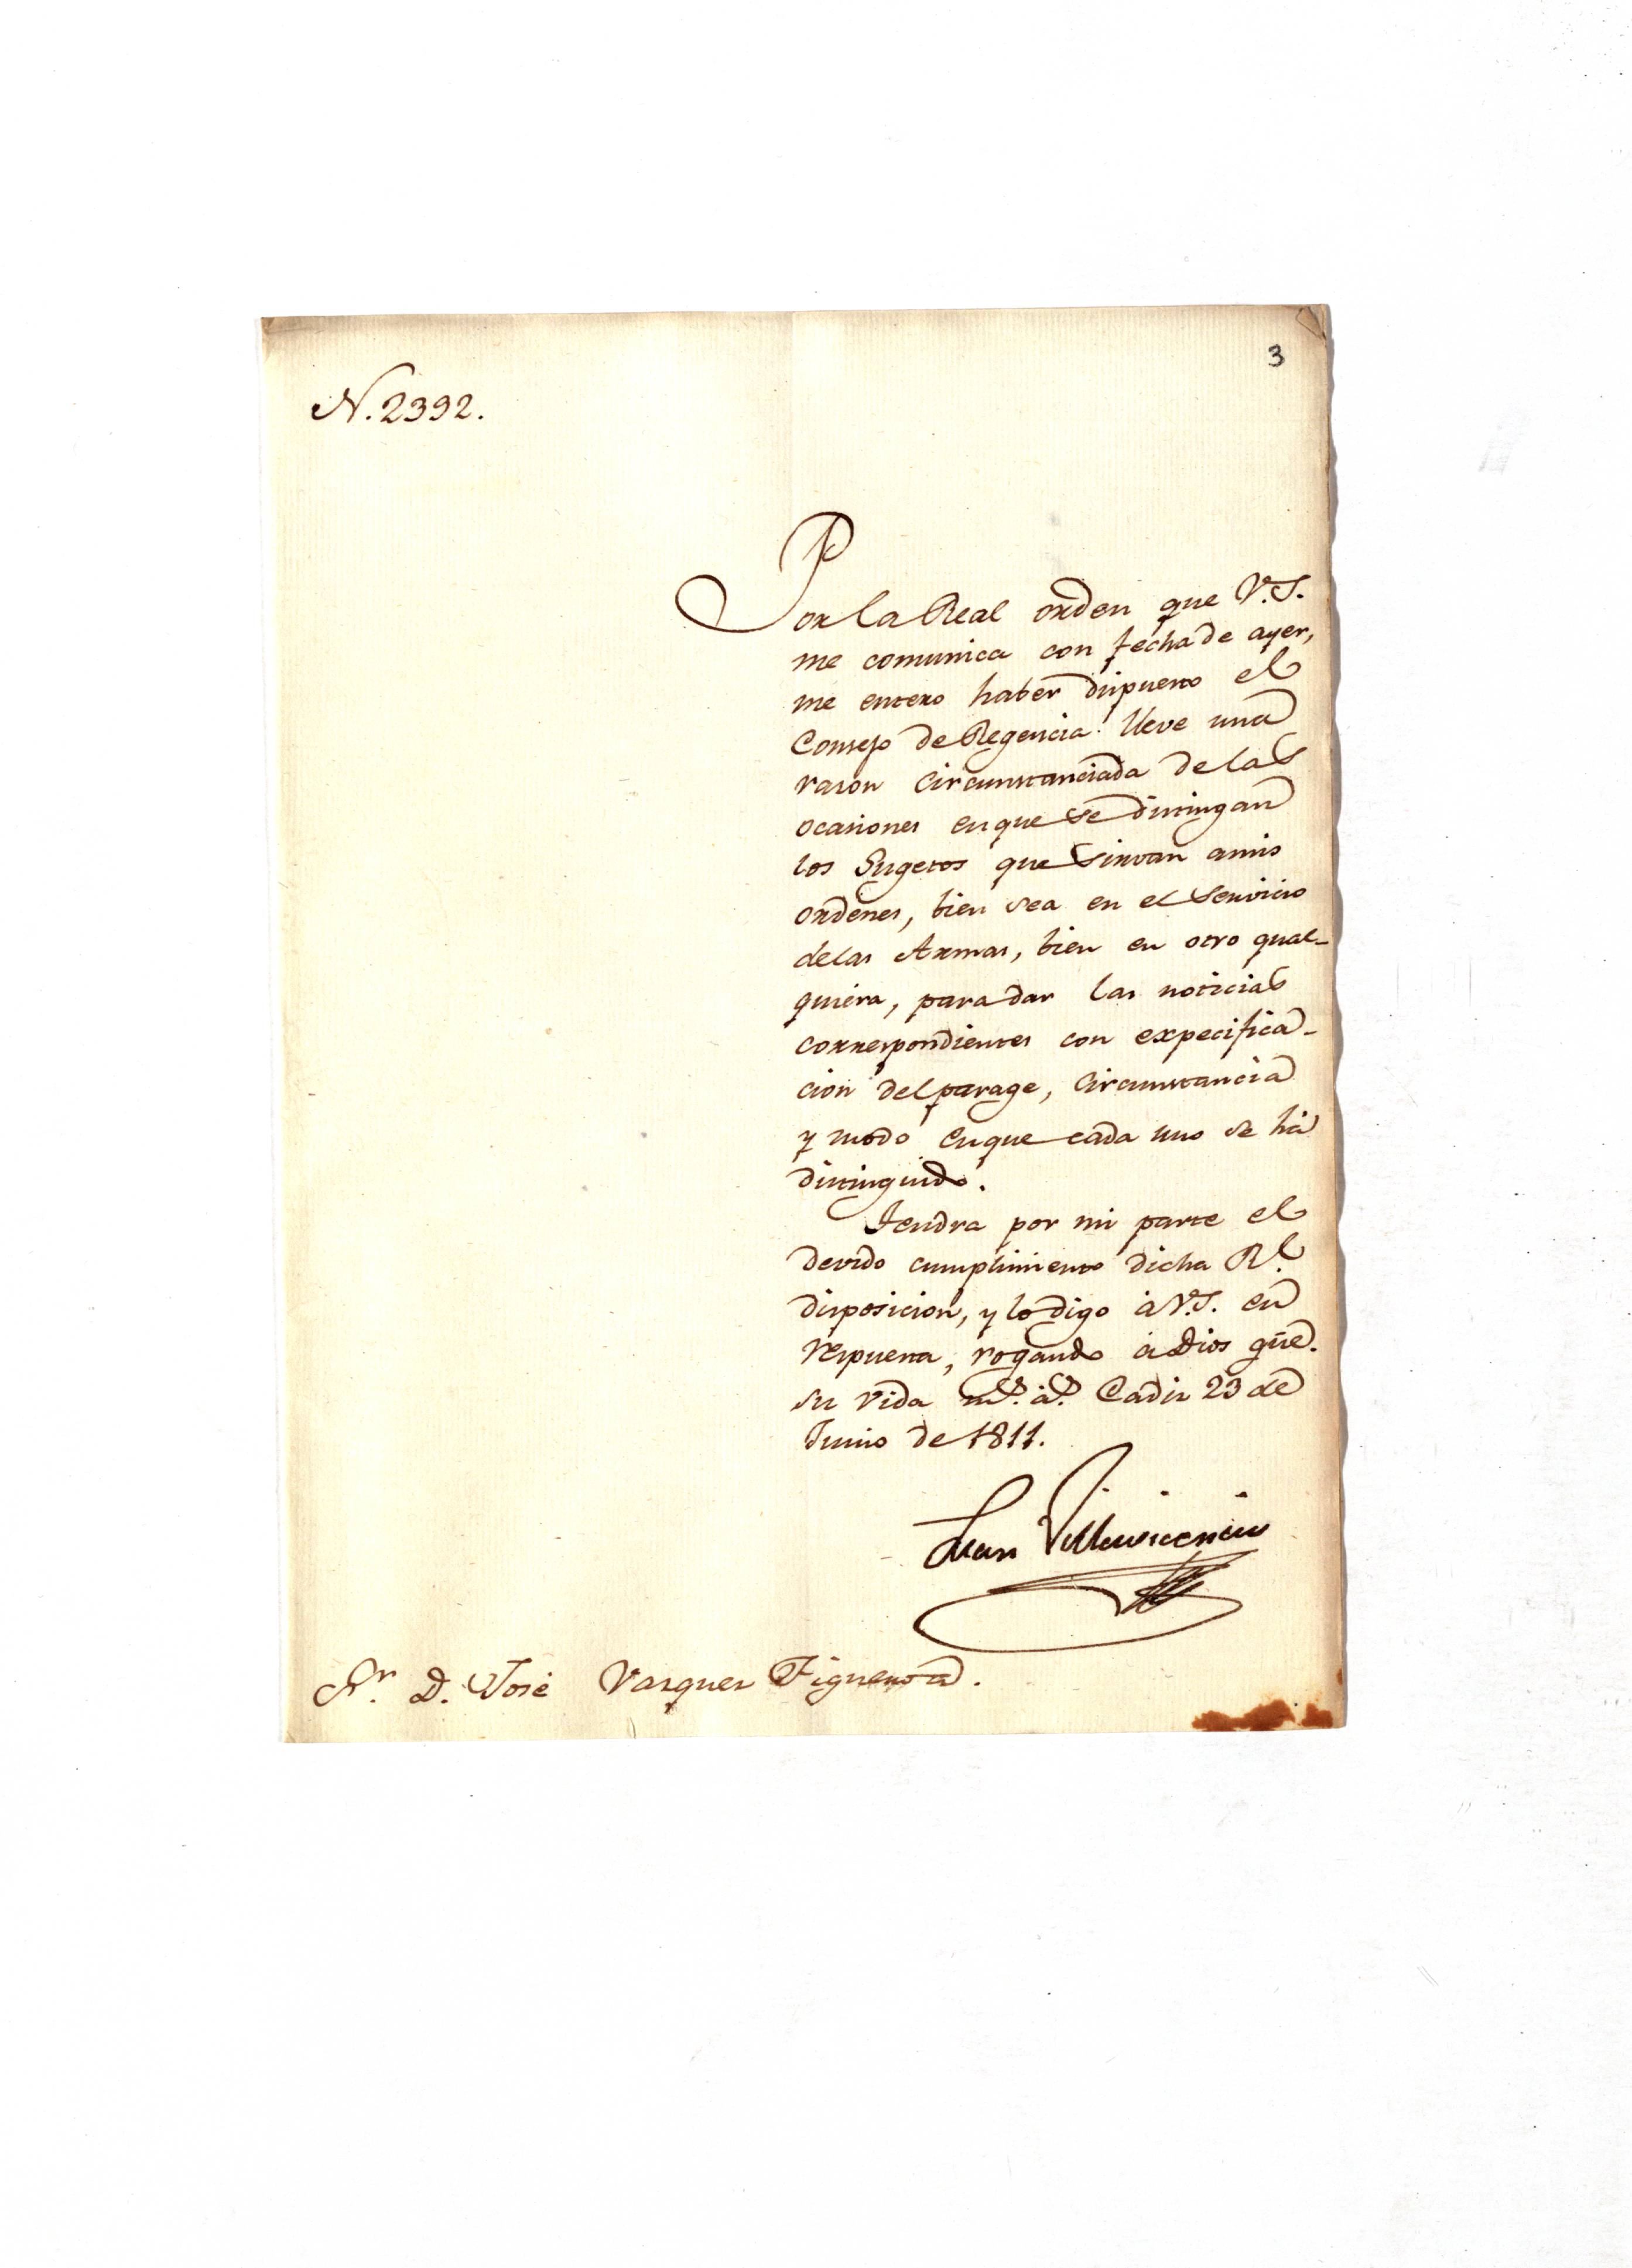 3
N. 2392.
Por la Real orden que V.S.
me comunica con fecha de ayer,
me entero haber dispuesto el
Consejo de Regencia lleve una
rason circunstanciada de las
ocasiones en que se distingan
los Sugetos que sirvan a mis
ordenes, bien sea en el servicio
de las Armas, bien en otro qual-
quiera, para dar las noticias
correspondientes con expecifica-
cion del parage, circunstancia
y modo en que cada uno se há
distinguido.
Tendra por mi parte el
devido cumplimiento dicha Rl.
disposicion, y lo digo à V.S. en
respuesta, rogando à Dios gūe.
su vida ms. as. Cadiz 23 de
Junio de 1811.
Juan Villavicencio
Sr. D. José Vasquez Figueroa.